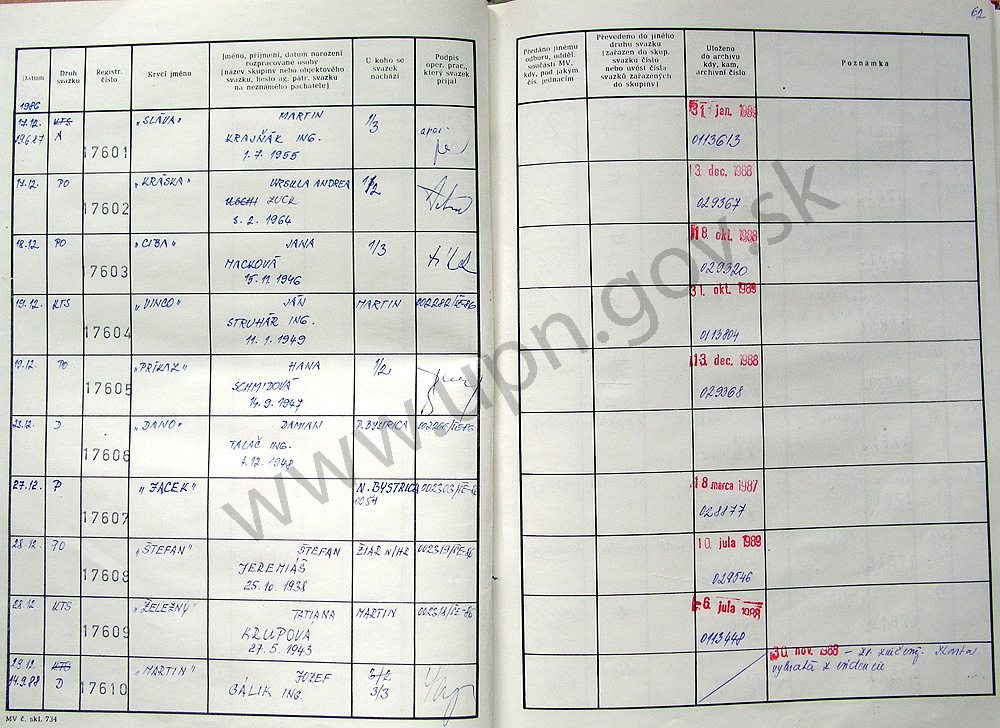 62
Datum
Druh svazku
Registr. číslo
Krycí jméno
Jméno, příjmení, datum narození
rozpracované osoby
[název skupiny nebo objektového
svazku, heslo ag. pátr. svazku
na neznámého pachatele]
U koho se
svazek
nachází
Podpis
oper. prac.,
který svazek
přijal
Předáno jinému
odboru, odděl.
součásti MV,
kdy, pod jakým
čís. jednacím
Převedeno do jiného
druhu svazku
[zařazen do skup.
svazku číslo
nebo uvést čísla
svazků zařazených
do skupiny]
Uloženo
do archivu
kdy, kam,
archivní číslo
Poznámka
1986
17.12. KTS „SLÁVA" MARTIN 1/3 31. jan. 1989
19.6.87 A 17601 KRAJŇÁK ING. 0113613
1.7.1955
17.12. PO „KRÁSKA" URSULA ANDREA 1/2 13. dec. 1988
17602 ZUCK 029367
3.2.1964
18.12. PO „CIBA" JANA 1/3 18. okt. 1988
17603 MACKOVÁ 029320
15.11.1946
19.12. KTS „VINCO" JÁN MARTIN 31. okt. 1989
17604 STRUHÁR ING. 0113804
11.1.1949
19.12. PO „PRÍKAZ" HANA 1/2 13. dec. 1988
17605 SCHMIDOVÁ 029368
14.9.1947
23.12. D „DANO" DAMIAN P. BYSTRICA
17606 TALAČ ING.
4.12.1948
27.12. P „JACEK" N. BYSTRICA 18 marca 1987
17607 0054 028877
28.12. PO „ŠTEFAN" ŠTEFAN ŽIAR N/HR 002319/ŠE-86 10. júla 1989
17608 JEREMIÁŠ 029546
25.10.1938
28.12. KTS „ŽELEZNÝ" TATIANA MARTIN 6. júla 1988
17609 KRUPOVÁ 0113448
27.5.1943
29.12. KTS „MARTIN" JOZEF 30. nov. 1988 – zv. zničený.
14.9.88 D 17610 GÁLIK ING. 3/3 z evidencie
MV č. skl. 734
www.upn.gov.sk